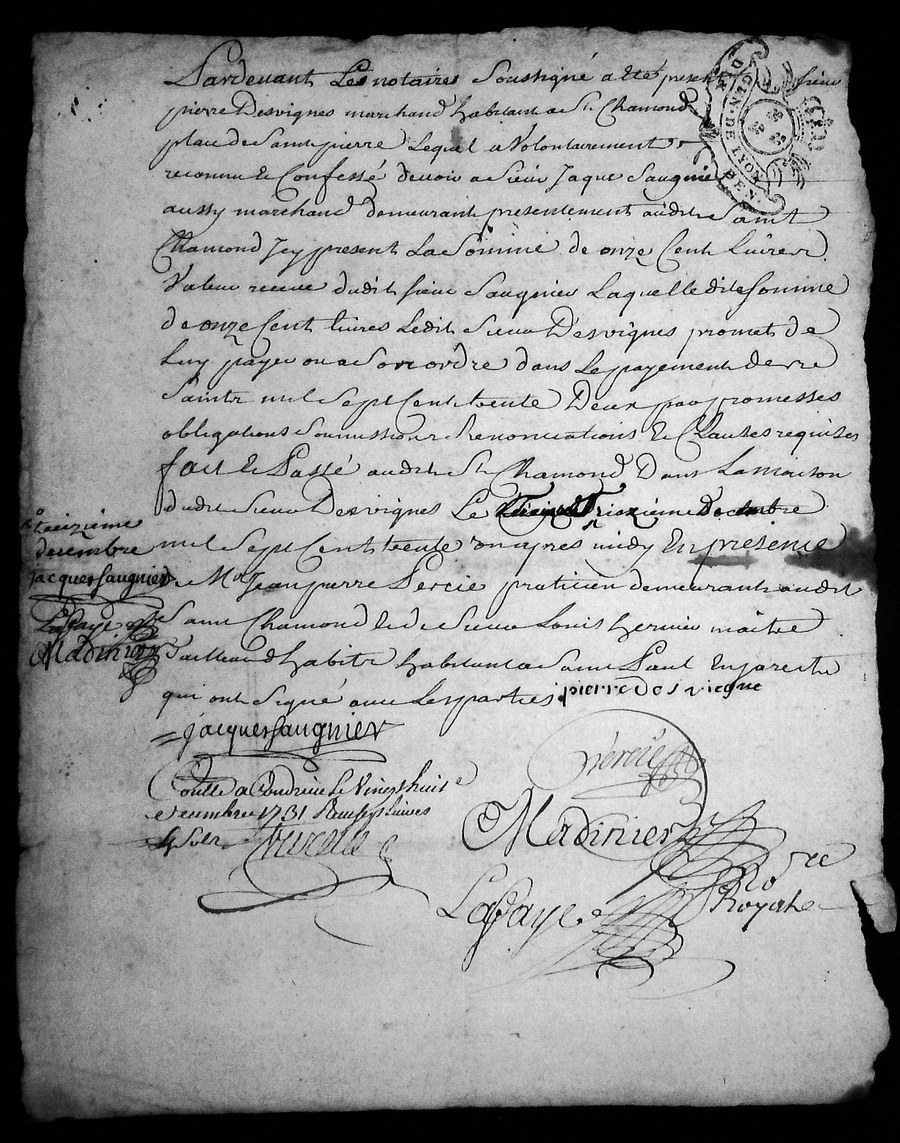 Pardevant Les notaires Soussigné a eté present sieur
pierre Desvignes marchand habitant a St. Chamond
place de Saint pierre Lequel a Volontairement
reconnu & Confessé devoir a Sieur Jaque Saugnier
aussy marchand demeurant presentement audit Saint
Chamond Icy present La Somme de onze Cent Livres
Valeur receue dudit sieur Saugnier Laquelle dite Somme
de onze Cent livres Ledit Sieur Desvignes promet de
Luy payer ou a Son ordre dans Le payement des
Saints mil Sept Cent trente Deux par promesses
obligations Soumissions Renonciations & Clauses requises
fait & Passé audit St. Chamond Dans La maison
dudit Sieur Desvignes Le Treizieme Decembre
mil Sept Cent trente un apres midy En presence
de Mre Jean pierre Percie praticien demeurant audit
Saint Chamond & de Sieur Louis hervier maitre
Tailleur d'habits habitant a Saint Paul En Jarest
qui ont Signé avec Les parties pierre Desvigne
treizième
decembre
jacques saugnier
Lafaye
Madinier
jacques saugnier
Percie
Controlle a Condrieu Le Vingt huit
decembre 1731 Reçu six Livres
4 Sols
Madinier
Nore
Royal
Lafaye
GEN. DE LYON
DEN.